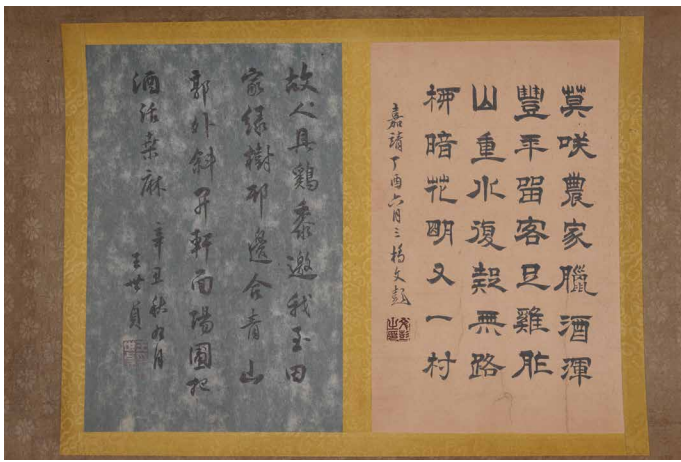 莫咲農家臘酒渾
豐年留客足雞豚
山重水復疑無路
柳暗花明又一村
嘉靖丁酉六月三橋文彭
文彭之印
故人具鷄黍邀我至田
家綠樹邨邊合青山
郭外斜开軒面場圃把
酒話桑麻
辛丑秋九月
王世貞